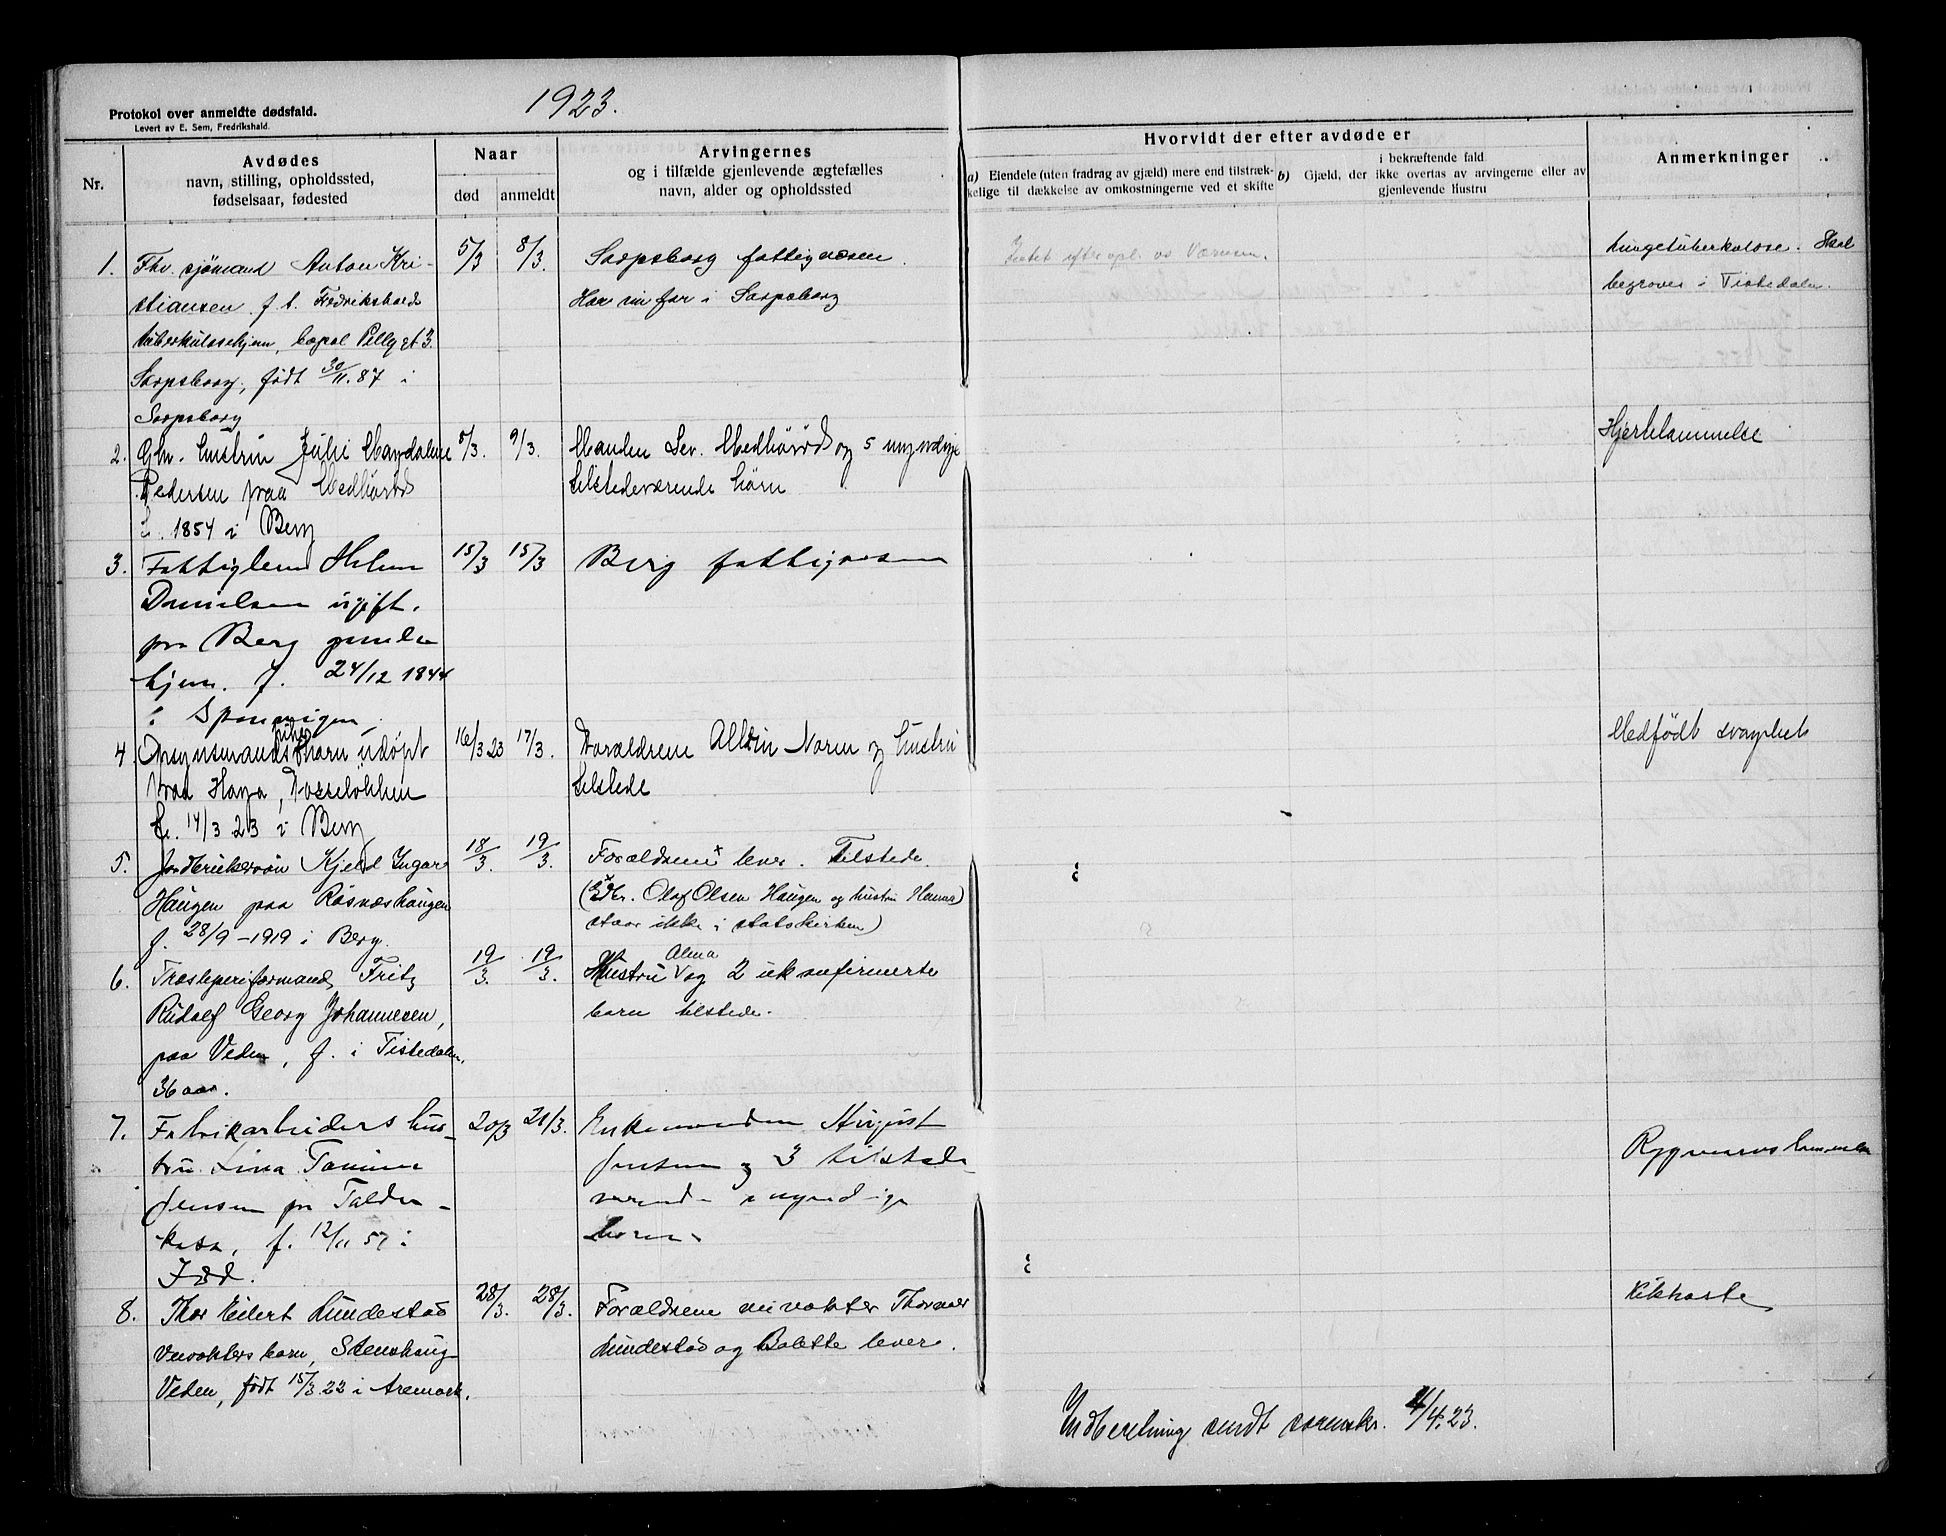 1923.
Protokol over anmeldte dødsfald.
Levert av E. Sem, Fredrikshald.
Nr.
Avdødes
navn, stilling, opholdssted,
fødselsaar, fødested
Naar
død
anmeldt
Arvingernes
og i tilfælde gjenlevende ægtefælles
navn, alder og opholdssted
Hvorvidt der efter avdøde er
a) Eiendele (uten fradrag av gjæld) mere end tilstræk-
kelige til dækkelse av omkostningerne ved et skifte
b) Gjæld, der i bekræftende fald
ikke overtas av arvingerne eller av
gjenlevende Hustru
Anmerkninger
1.
Fhv. sjømand Anton Kri-
stiansen f. t. Fredrikshalds
tuberkulosehjem, bopæl Pellygt 3.
Sarpsborg, født 30/11.87 i
Sarpsborg
5/3
8/3.
Sarpsborg fattigvæsen.
Har sin far i Sarpsborg
Intet efter opl. av
Lungetuberkulose. Skal
begraves i Tistedalen.
2.
Gm. hustru Juli Magdalene
Pedersen fraa
f. 1854 i Berg
8/3.
9/3.
Manden og 5 myndige
tilstedeværende børn
Hjertelammelse
3.
Fattiglem Helene
Danielsen ugift.
paa Berg gamle
hjem. f. 24/12 1844
i Sponvigen.
15/3
15/3
Berg fattigvæsen
4.
Opsynsmands barn, udøpt
fraa Haga,
f. 14/3 23 i Berg
16/3 23
17/3.
Forældrene Norén og hustru
tilstede
Medfødt svaghet
5.
Jordbrukersøn Kjeld Ingar
Haugen paa Røsnæshaugen
f. 28/9-1919 i Berg.
18/3.
19/3.
Forældrene x lever. Tilstede.
(x Gbr. Olaf Olsen Haugen og hustru Hanna)
staar ikke i statskirken)
6.
Træsliperiformand Fritz
Rudolf Georg Johannesen,
paa Veden, f. i Tistedalen,
36 aar.
19/3.
19/3.
Hustru Alma og 2 ukonfirmerte
barn tilstede.
7.
Fabrikarbeiders hus-
tru Lina Tomine
Jensen paa
f. 12/11 57 i
Idd.
20/3
21/3.
Enkemanden August
Jensen og 3 tilstede-
værende myndige
børn.
Rygmarvs
8.
Thor Eilert Lundestad
Vevokters barn, Stenshaug
Veden, født 15/3 22 i Aremark.
28/3.
28/3.
Forældrene veivokter Thorvald
Lundestad og Bolette lever.
Kikhoste
Indberetning sendt sorenskr. 4/4.23.